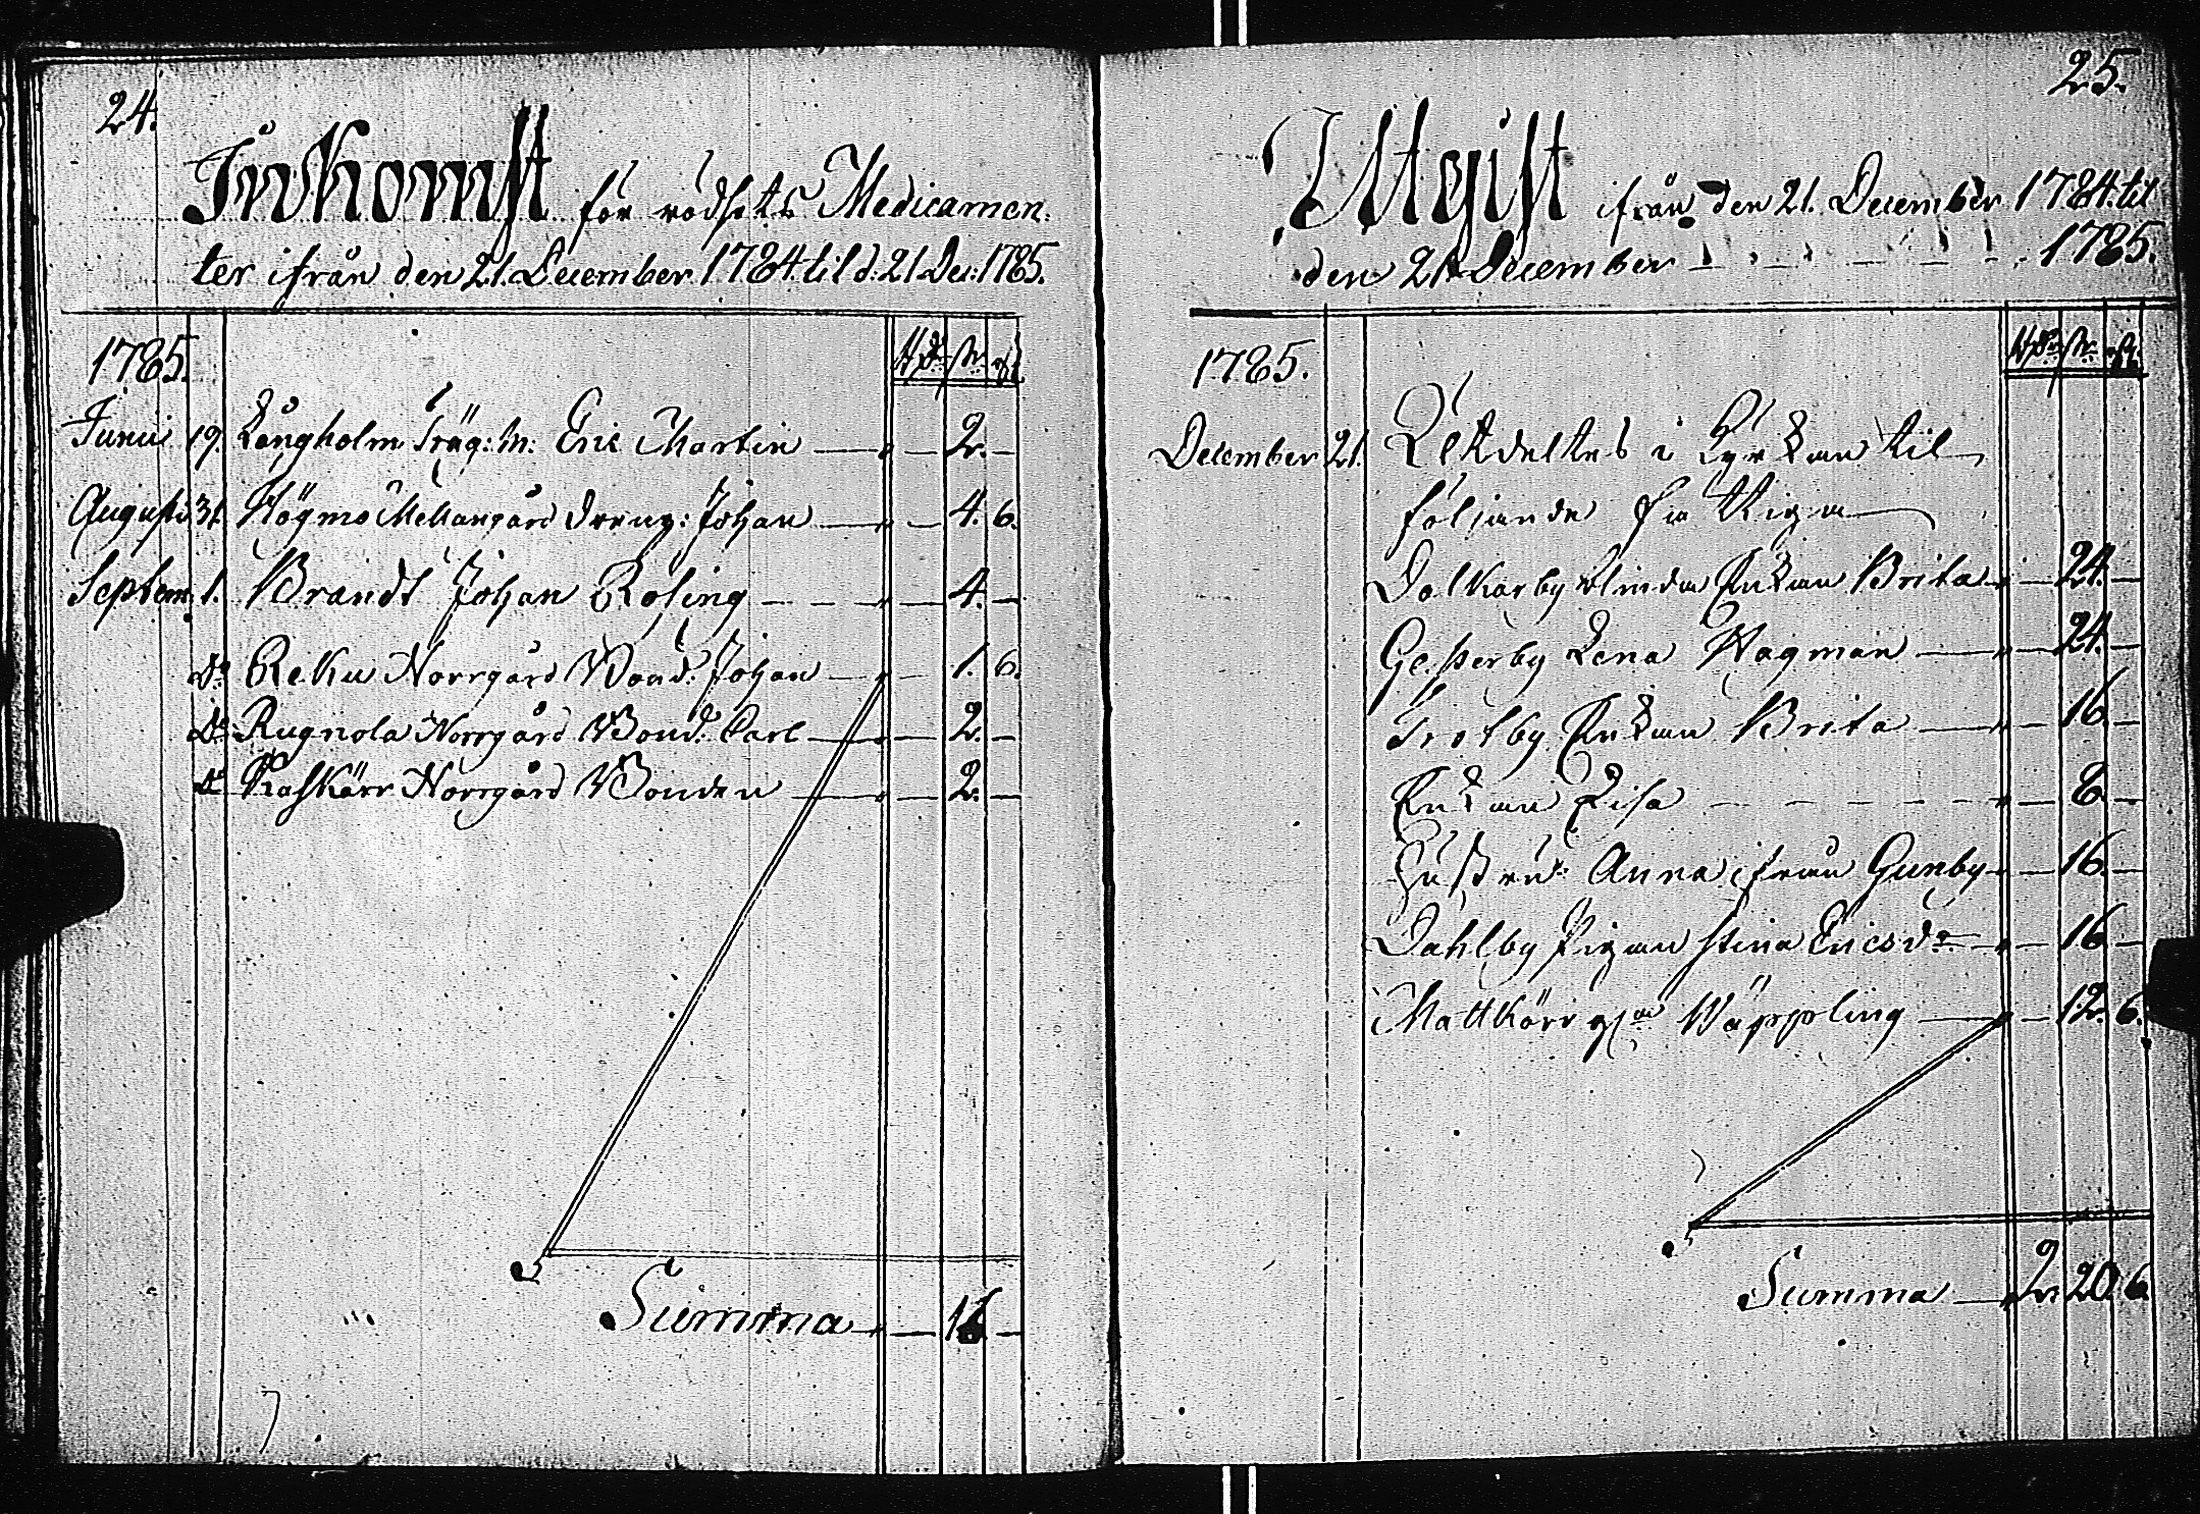 24.
Inkomst för rödsots Medicamen:
ter ifrån den 21. December 1784. til d: 21 Dec: 1785.
1785.
Junii 19. Långholm Träg: M: Eric Martin — " — 2. —
Augusti 31. Högmo Mellangård Dreng: Johan — " — 4. 6.
Septem. 1. Brandt Johan Rosing — — — " — 4. —
do Reku Norrgård Bond: Johan — " — 1. 6.
do Rugnola Norrgård Bond: Carl — " — 2. —
do Kaskärr Norrgård Bonden — " — 2. —
Summa — " — 16 —
25.
Utgift ifrån den 21. December 1784. til
den 21. December — — — — 1785.
1785.
December 21. Utdeltes i Kyrkan til
följande fattiga
Dalkarby blinda Enkan Brita — " — 24. —
Gesterby Lena Hagman — " — 24. —
Trolby Enkan Brita — " — 16. —
Enkan Lisa — — — — " — 8. —
Hustru Anna ifrån Gunby — " — 16. —
Dahlby Pigan Stina Ericsdr — " — 16 —
Mattkärr Wäppling — " — 12. 6.
Summa — " 2. 20. 6